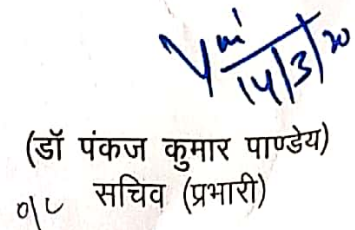 14/3/20
(डॉ पंकज कुमार पाण्डेय)
सचिव (प्रभारी)
o/c